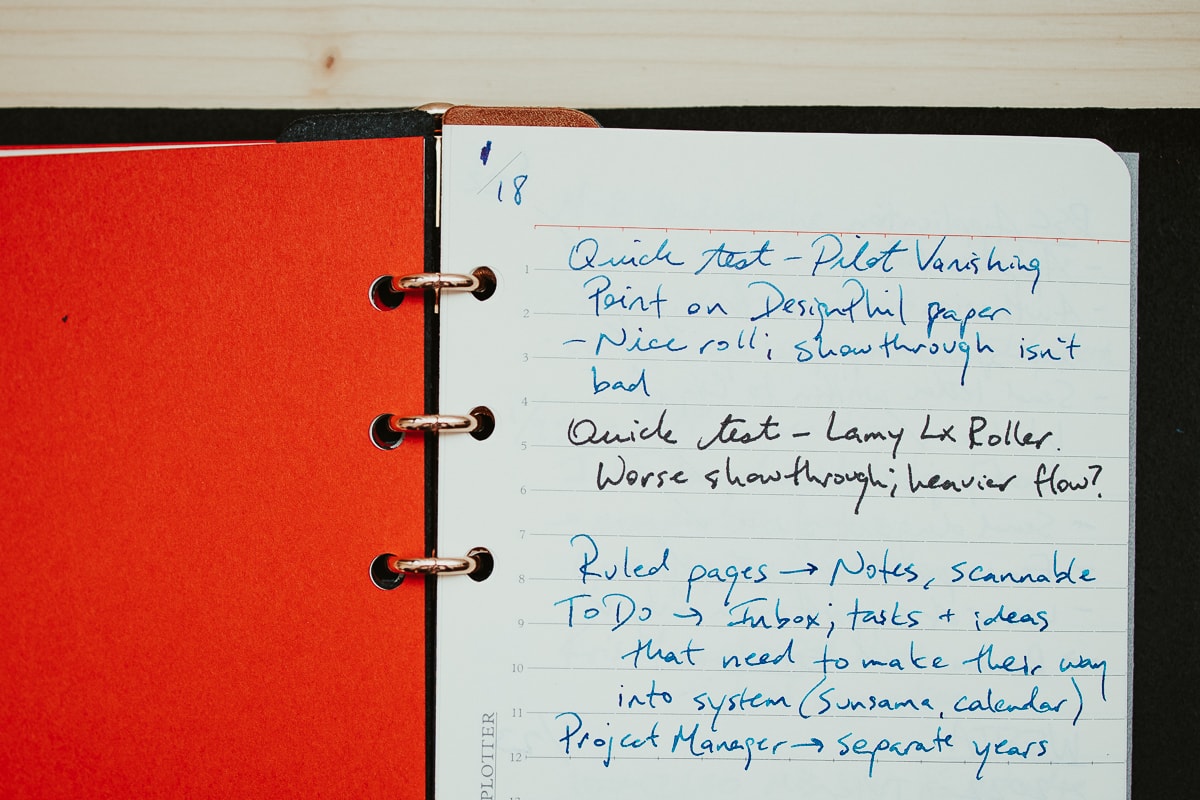 1/18
1 Quick test - Pilot Vanishing
2 Point on DesignPhil paper
3 - Nice roll; showthrough isn't
4 bad
5 Quick test - Lamy Lx Roller.
6 Worse showthrough; heavier flow?
7
8 Ruled pages → Notes, scannable
9 ToDo → Inbox; tasks + ideas
10 that need to make their way
11 into system (Sunsama, calendar)
12 Project Manager → separate years
PLOTTER